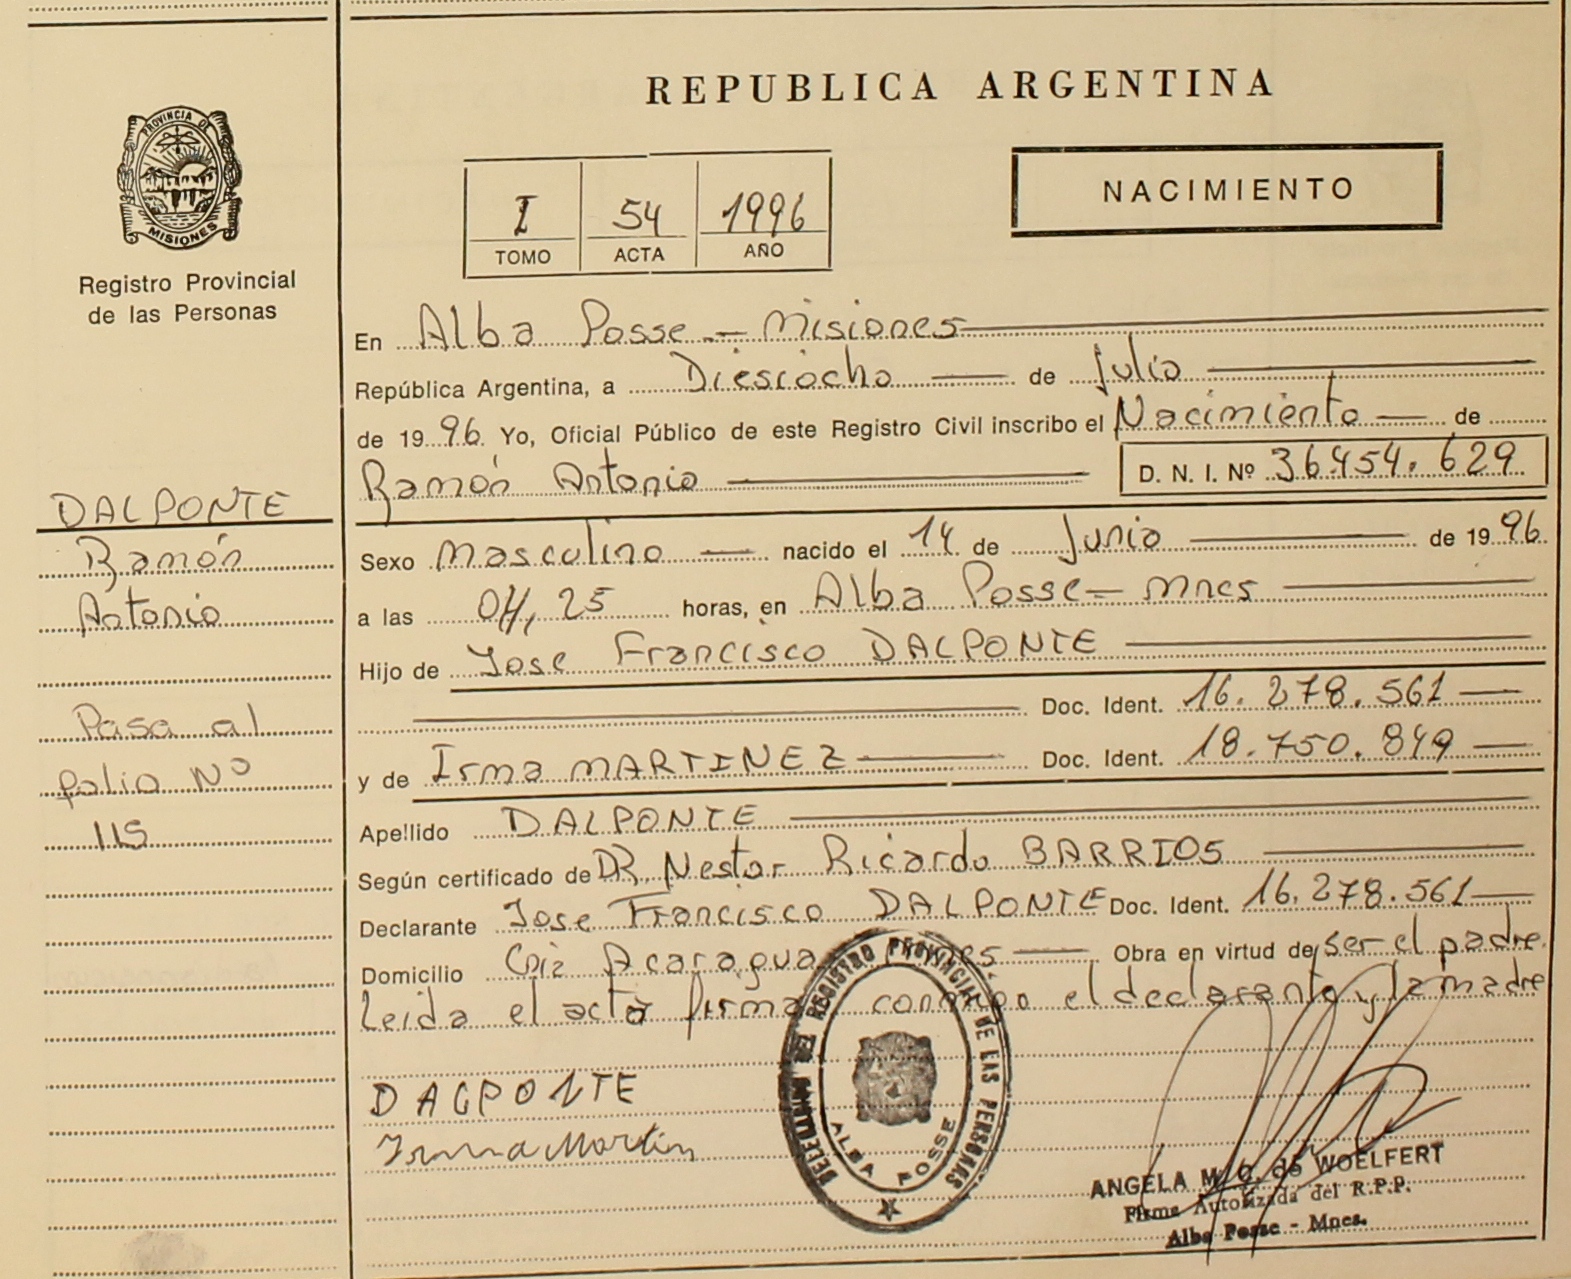 REPUBLICA ARGENTINA
PROVINCIA DE
MISIONES
Registro Provincial
de las Personas
NACIMIENTO
I 54 1996
TOMO ACTA AÑO
En Alba Posse - Misiones
República Argentina, a Diesciocho de Julio
de 1996 Yo, Oficial Público de este Registro Civil inscribo el Nacimiento de
Ramón Antonio D. N. I. Nº 36.454.629
DALPONTE
Ramón
Antonio
Pasa al
folio Nº
115
Sexo Masculino nacido el 14 de Junio de 1996
a las 04,25 horas, en Alba Posse - Mnes
Hijo de Jose Francisco DALPONTE
Doc. Ident. 16.278.561
y de Irma MARTINEZ Doc. Ident. 18.750.849
Apellido DALPONTE
Según certificado de DR. Nestor Ricardo BARRIOS
Declarante Jose Francisco DALPONTE Doc. Ident. 16.278.561
Domicilio Acaragua Obra en virtud de ser el padre.
Leida el acta firma conmigo el declarante y la madre
DACPONTE
Irma Martin
DELEGACION DEL REGISTRO PROVINCIAL DE LAS PERSONAS
ALBA POSSE
ANGELA M. Q. de WOELFERT
Firma Autorizada del R.P.P.
Alba Posse - Mnes.